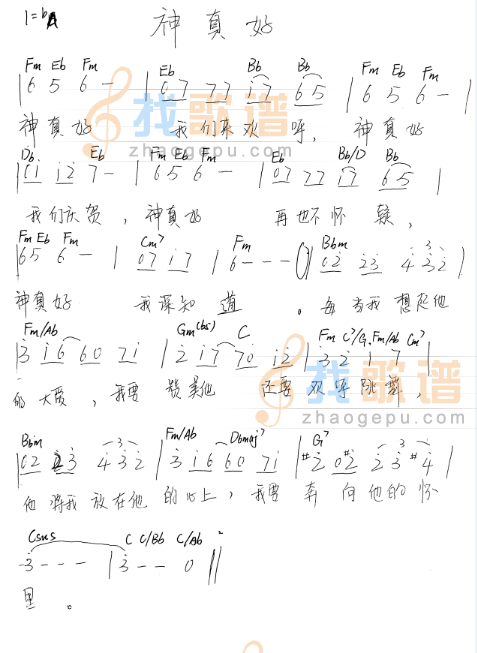 1=bA 神真好
Fm Eb Fm Eb Bb Bb Fm Eb Fm
|6 5 6 - | 07 77 i7 65 | 6 5 6 - |
神真好 我们来欢呼， 神真好
Db Eb Fm Eb Fm Eb Bb/D Bb
|0i i2 7- | 65 6 - | 07 77 i7 65 |
我们庆贺，神真好 再也不怀疑，
Fm Eb Fm Cm7 Fm Bbm
|65 6 - | 07 i7 | 6 - - - || 02 23 4 32 |
神真好 我深知道 。每当我想起他
Fm/Ab Gm(b5) C Fm C7/G Fm/Ab Cm7
|3 i6 60 7i | 2 i7 70 i2 | 3 2 1 7 |
的大爱，我要赞美他 还要欢呼跳舞，
Bbm Fm/Ab Dbmaj7 G7
|02 23 4 3 2 | 3 i6 60 7i | #2 0#2 2 3 #4 |
他将我放在他的心上，我要奔向他的怀
Csus C C/Bb C/Ab
3 - - - | 3 - - 0 ||
里。
找歌谱
zhaogepu.com
找歌谱
zhaogepu.com